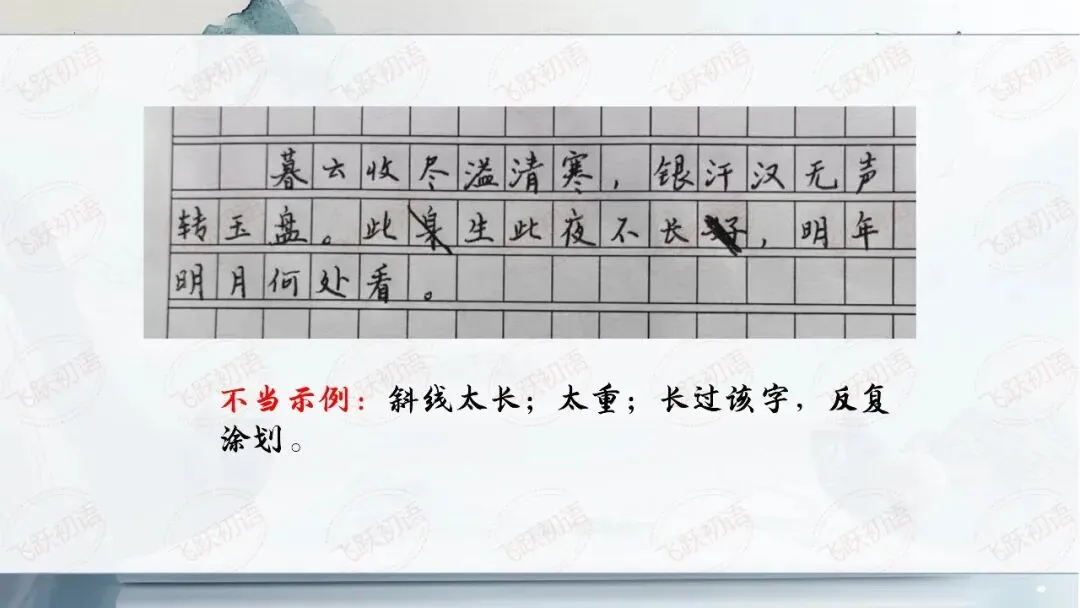 暮云收尽溢清寒，银汗汉无声
转玉盘。此臬生此夜不长好，明年
明月何处看。
不当示例：斜线太长；太重；长过该字，反复
涂划。
飞跃初语